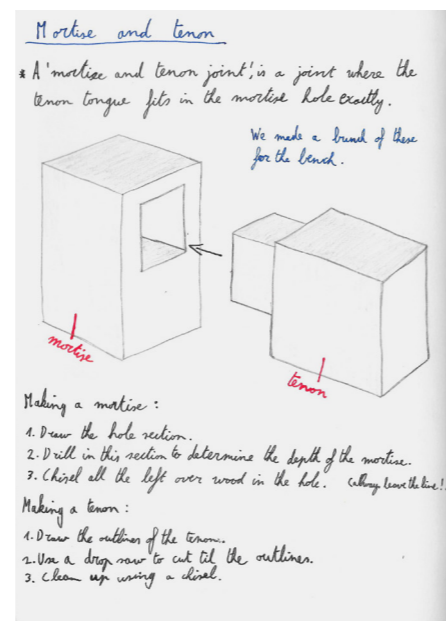 Mortise and tenon
* A 'mortise and tenon joint', is a joint where the
tenon tongue fits in the mortise hole exactly.
We made a bunch of these
for the bench.
mortise
tenon
Making a mortise :
1. Draw the hole section.
2. Drill in this section to determine the depth of the mortise.
3. Chisel all the left over wood in the hole. (always leave the line!)
Making a tenon :
1. Draw the outlines of the tenon.
2. Use a drop saw to cut til the outlines.
3. Clean up using a chisel.